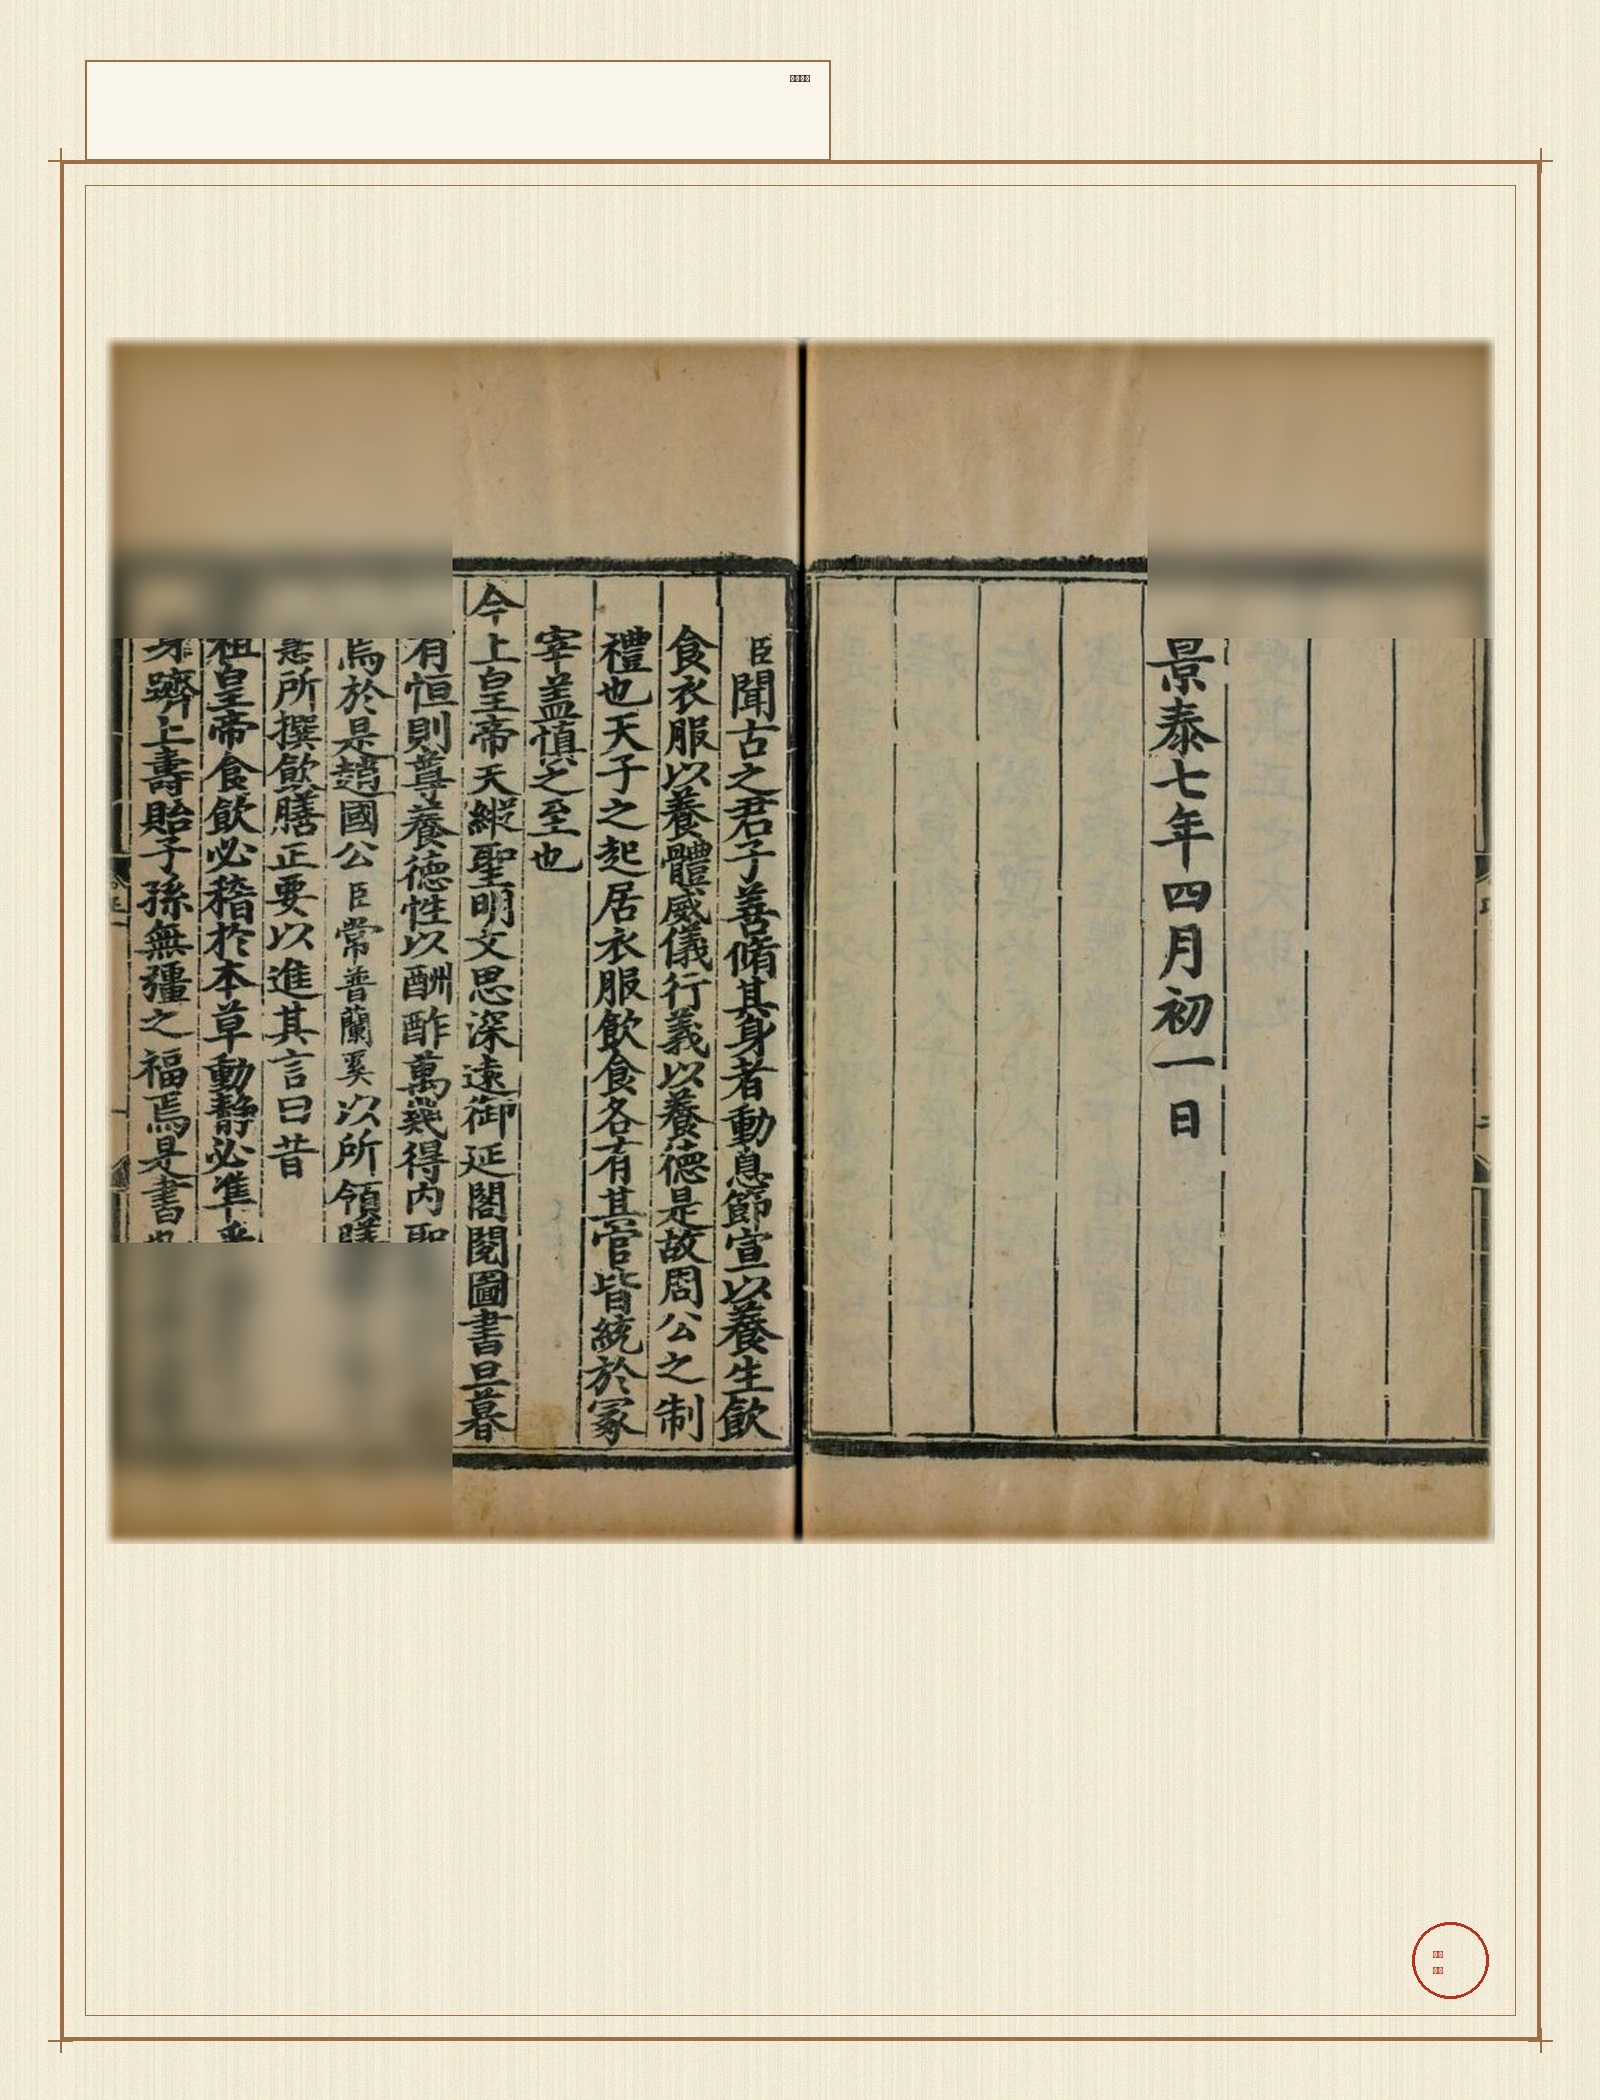 景泰七年四月初一日
臣聞古之君子善脩其身者動息節宣以養生飲
食衣服以養體威儀行義以養德是故周公之制
禮也天子之起居衣服飲食各有其官皆統於冢
宰盖慎之至也
今上皇帝天縱聖明文思深遠御延閣閱圖書旦暮
有恒則尊養德性以酬酢萬幾得內聖
焉於是趙國公臣常普蘭奚以所領膳
所撰飲膳正要以進其言曰昔
祖皇帝食飲必稽於本草動靜必準乎
身躋上壽貽子孫無疆之福焉是書也